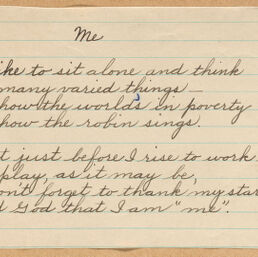 Me
ike to sit alone and think
many varied things—
how the worlds in poverty
how the robin sings.
t just before I rise to work
play, as it may be,
on't forget to thank my star
d God that I am "me".